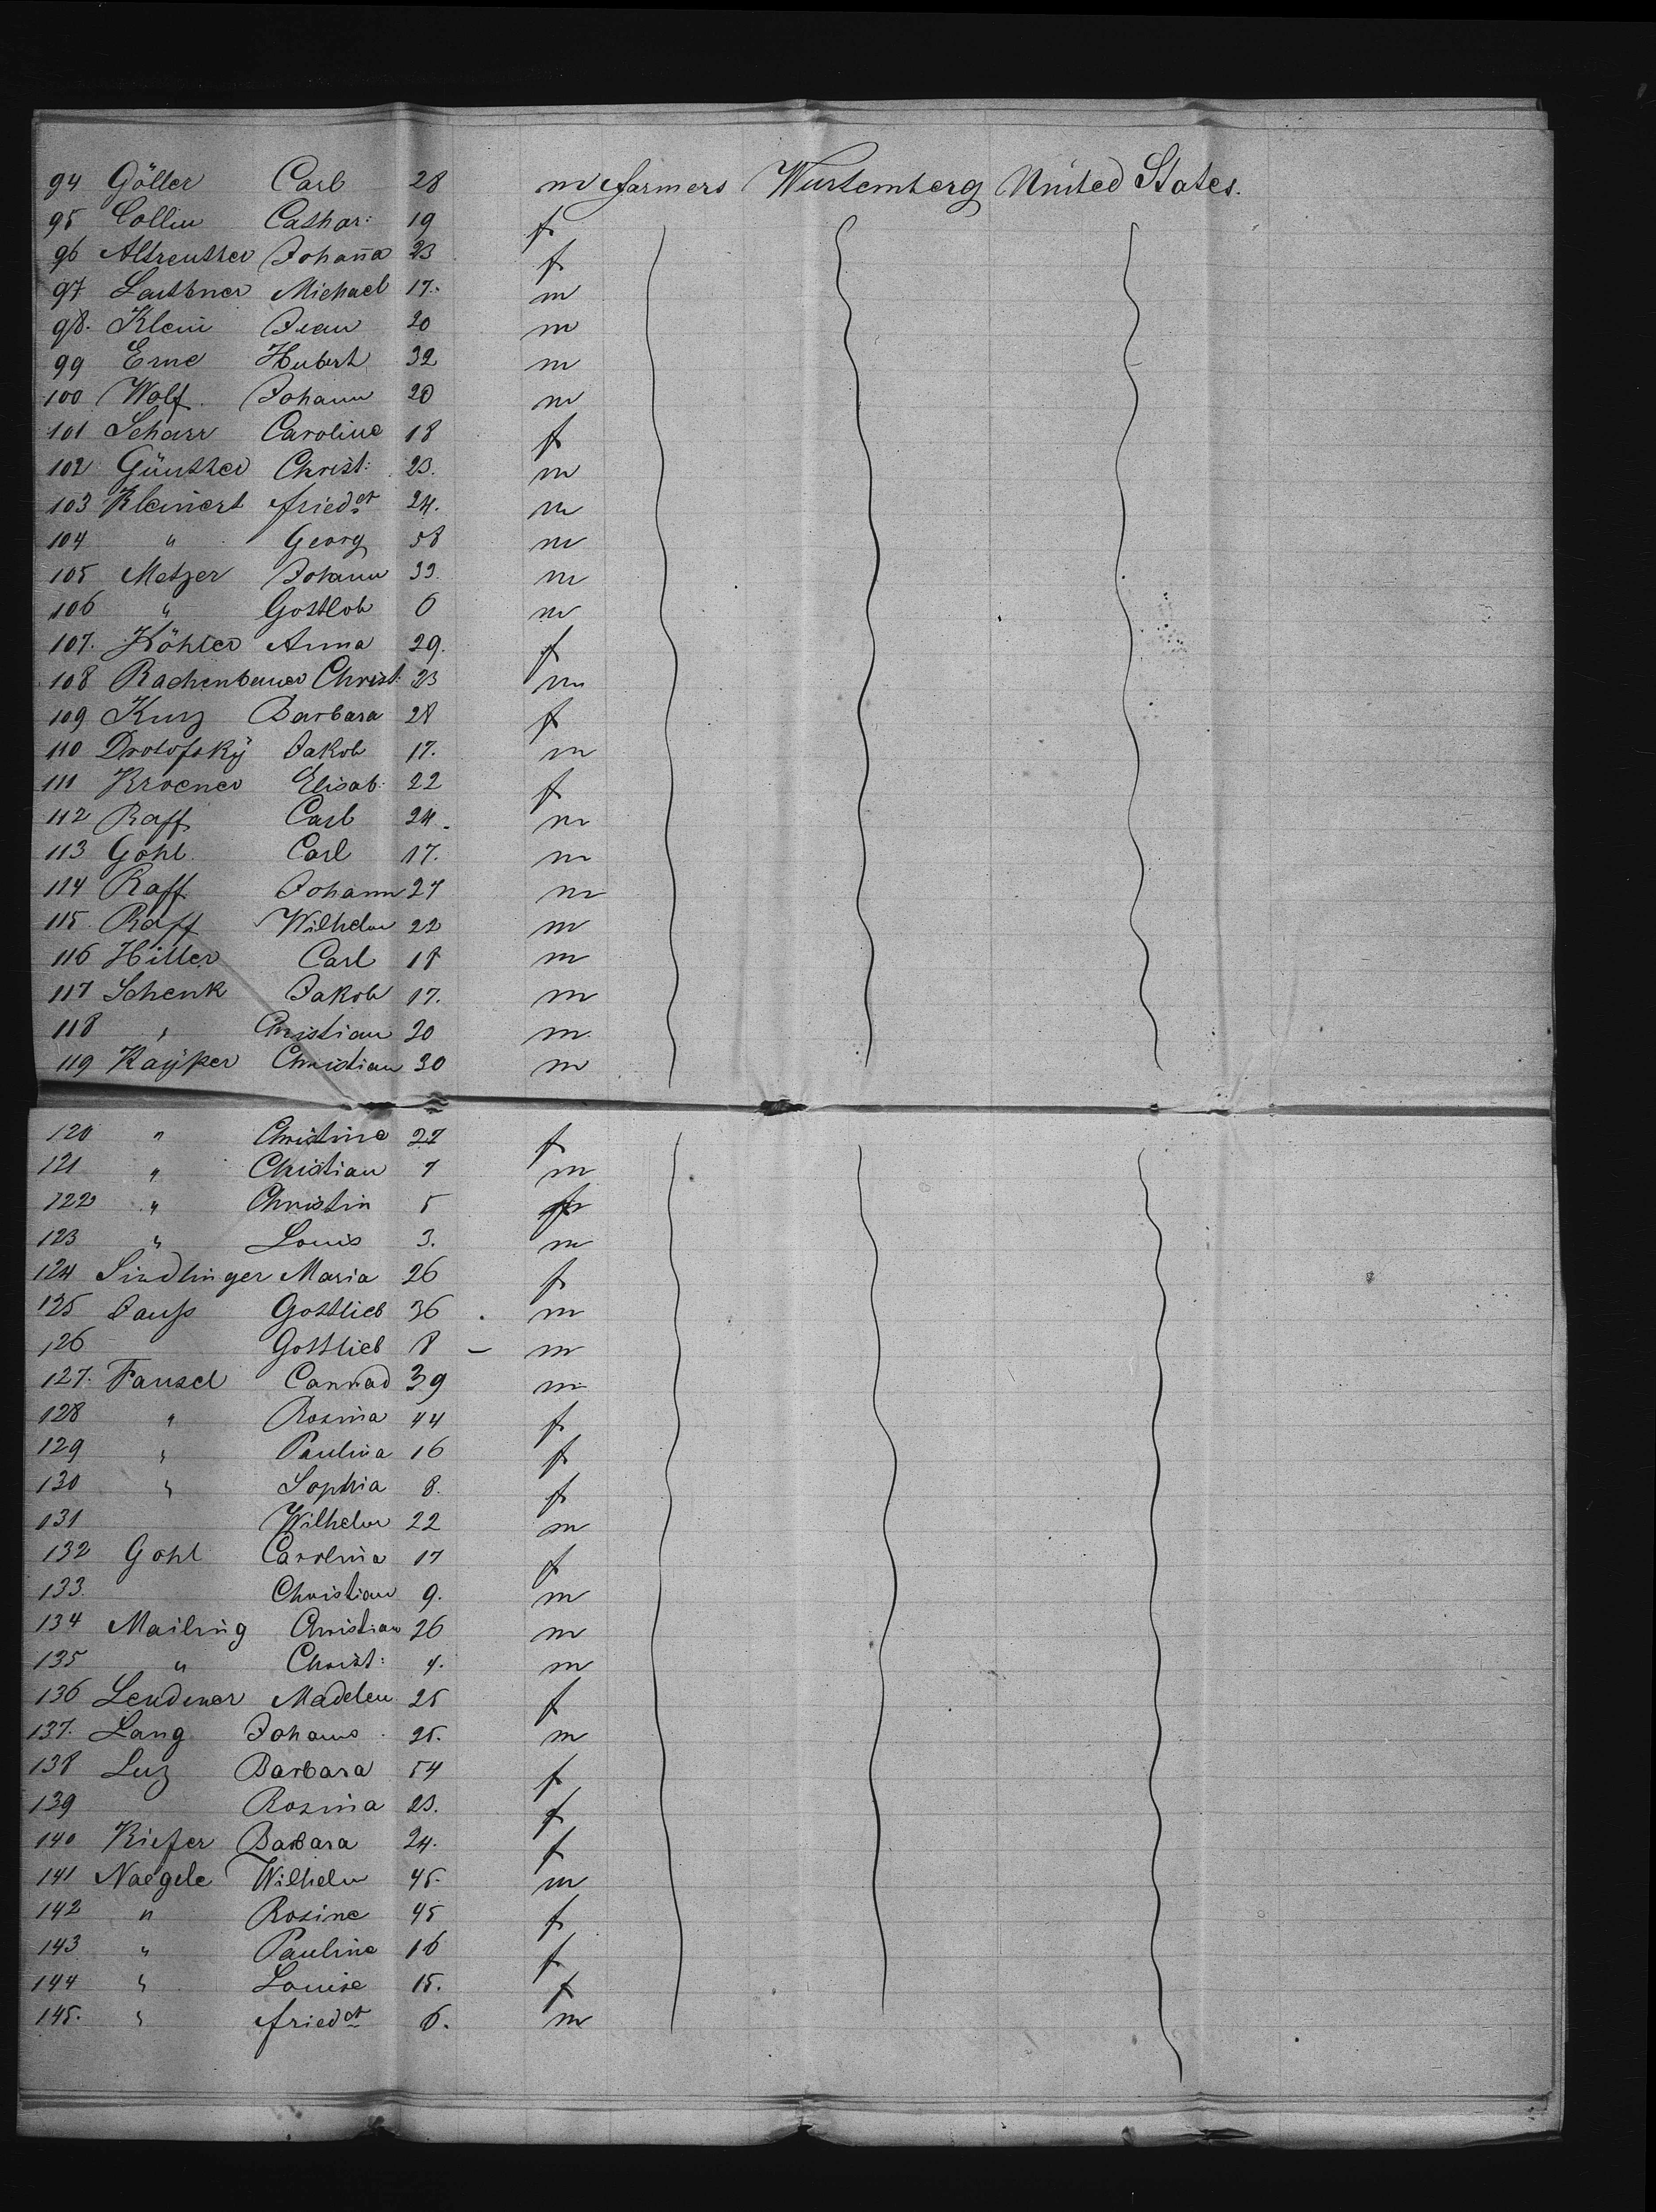 94 Göller Carl 28 m farmers Wurtemberg United States.
95 Collin Cathar: 19 f
96 Altreuther Johan̄a 23 f
97 Lauthner Michael 17. m
98. Klein Jean 20 m
99 Erne Hubert 32 m
100 Wolf Johann 20 m
101 Scharr Caroline 18 f
102 Günther Christ: 23. m
103 Kleinert friedch 24. m
104 " Georg 58 m
105 Metzer Johann 33. m
106 " Gottlob 6 m
107. Köhler Anna 29. f
108 Christ: 23 m
109 Kurz Barbara 28 f
110 Drotofskÿ Jakob 17. m
111 Kroener Elisab: 22 f
112 Raff Carl 24. m
113 Gohl Carl 17. m
114 Raff Johann 27 m
115 Raff Wilhelm 22 m
116 Hiller Carl 18 m
117 Schenk Jakob 17. m
118 " Christian 20 m
119 Kaÿser Christian 30 m
120 " Christine 27 f
121 " Christian 7 m
122 " Christin 5
123 " Louis 3. m
124 Sindlinger Maria 26 f
125 Jauß Gottlieb 36 m
126 Gottlieb 8 – m
127. Fausel Conrad 39 m
128 " Rosina 44 f
129 " Paulina 16 f
130 " Sophia 8. f
131 Wilhelm 22 m
132 Gohl Carolina 17 f
133. Christian 9. m
134 Mailing Christian 26 m
135 " Christ: 4. m
136 Lendener Madelen 25 f
137. Lang Johann 25. m
138 Luz Barbara 54 f
139 Rosina 23. f
140 Kiefer Barbara 24. f
141 Naegele Wilhelm 45. m
142 " Rosine 45 f
143 " Pauline 16 f
144 " Louise 15. f
145. " friedch 6. m